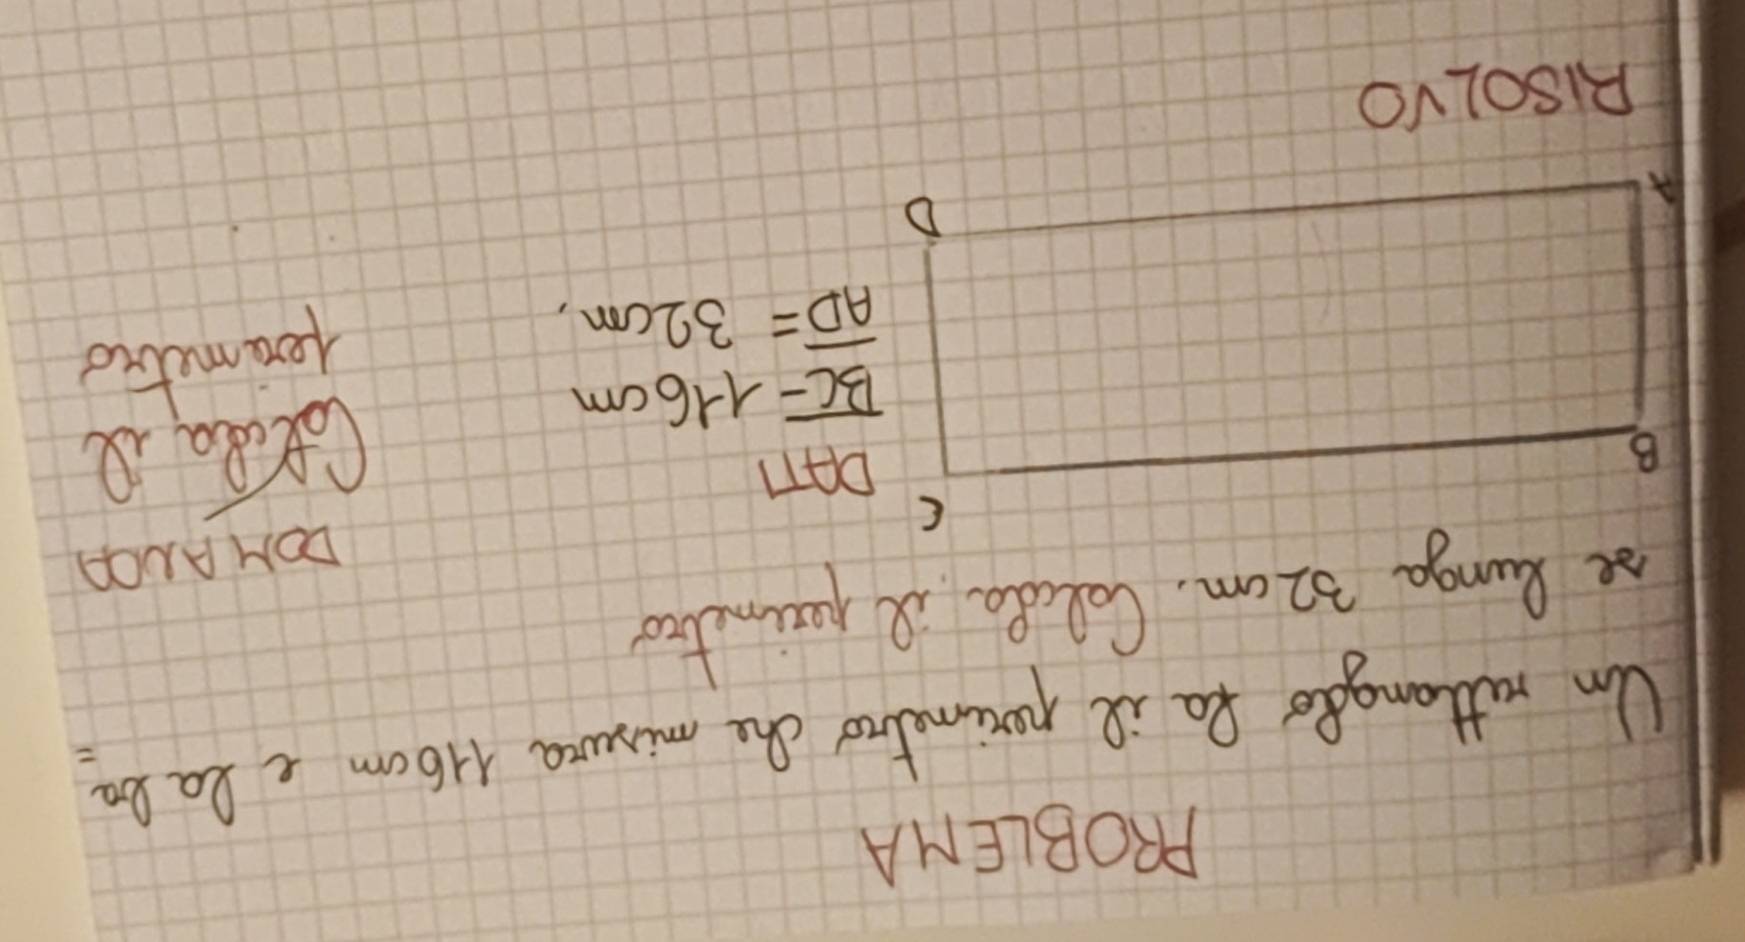 PROBLEMA
Un rettangolo ha il perimetro che misura 116 cm e la ba=
se lunga 32 cm. Calcola il perimetro
DOMANDA
Calcola il
perametro
DATI
BC = 116 cm
AD = 32 cm.
B
C
A
D
RISOLVO